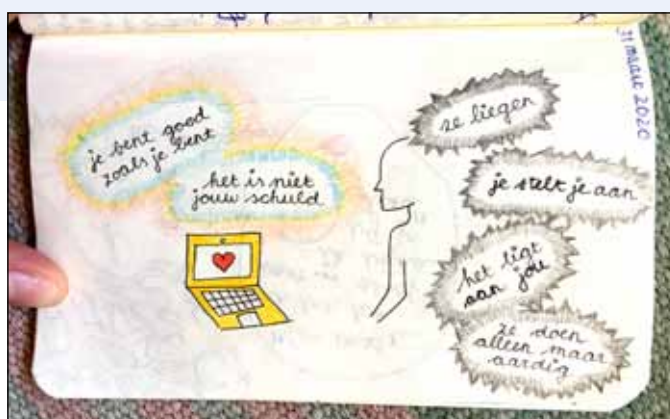 31 maart 2020
je bent goed
zoals je bent
het is niet
jouw schuld
ze liegen
je stelt je aan
het ligt
aan jou
ze doen
alleen maar
aardig